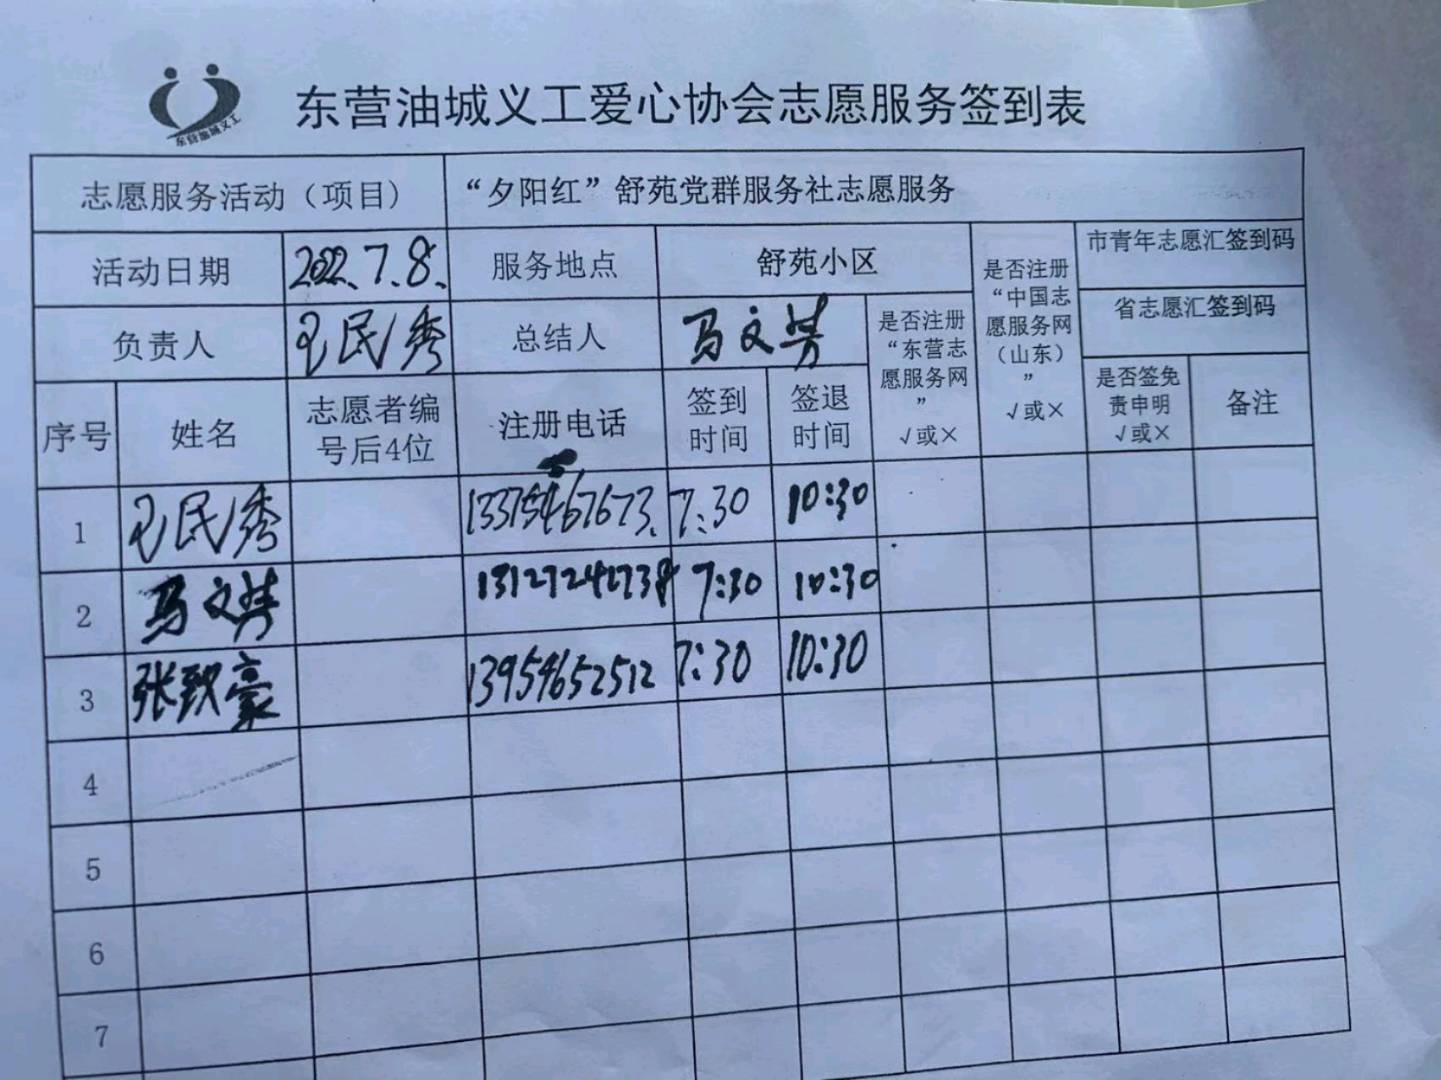 东营油城义工
东营油城义工爱心协会志愿服务签到表
志愿服务活动（项目） “夕阳红”舒苑党群服务社志愿服务
活动日期 2022.7.8. 服务地点 舒苑小区
负责人 民秀 总结人 马文
是否注册“东营志愿服务网”√或×
是否注册“中国志愿服务网（山东）”√或×
市青年志愿汇签到码
省志愿汇签到码
序号 姓名 志愿者编号后4位 注册电话 签到时间 签退时间 是否签免责申明√或× 备注
1 民秀 13375467673. 7:30 10:30
2 马文 7:30 10:30
3 张致豪 13954652512 7:30 10:30
4
5
6
7